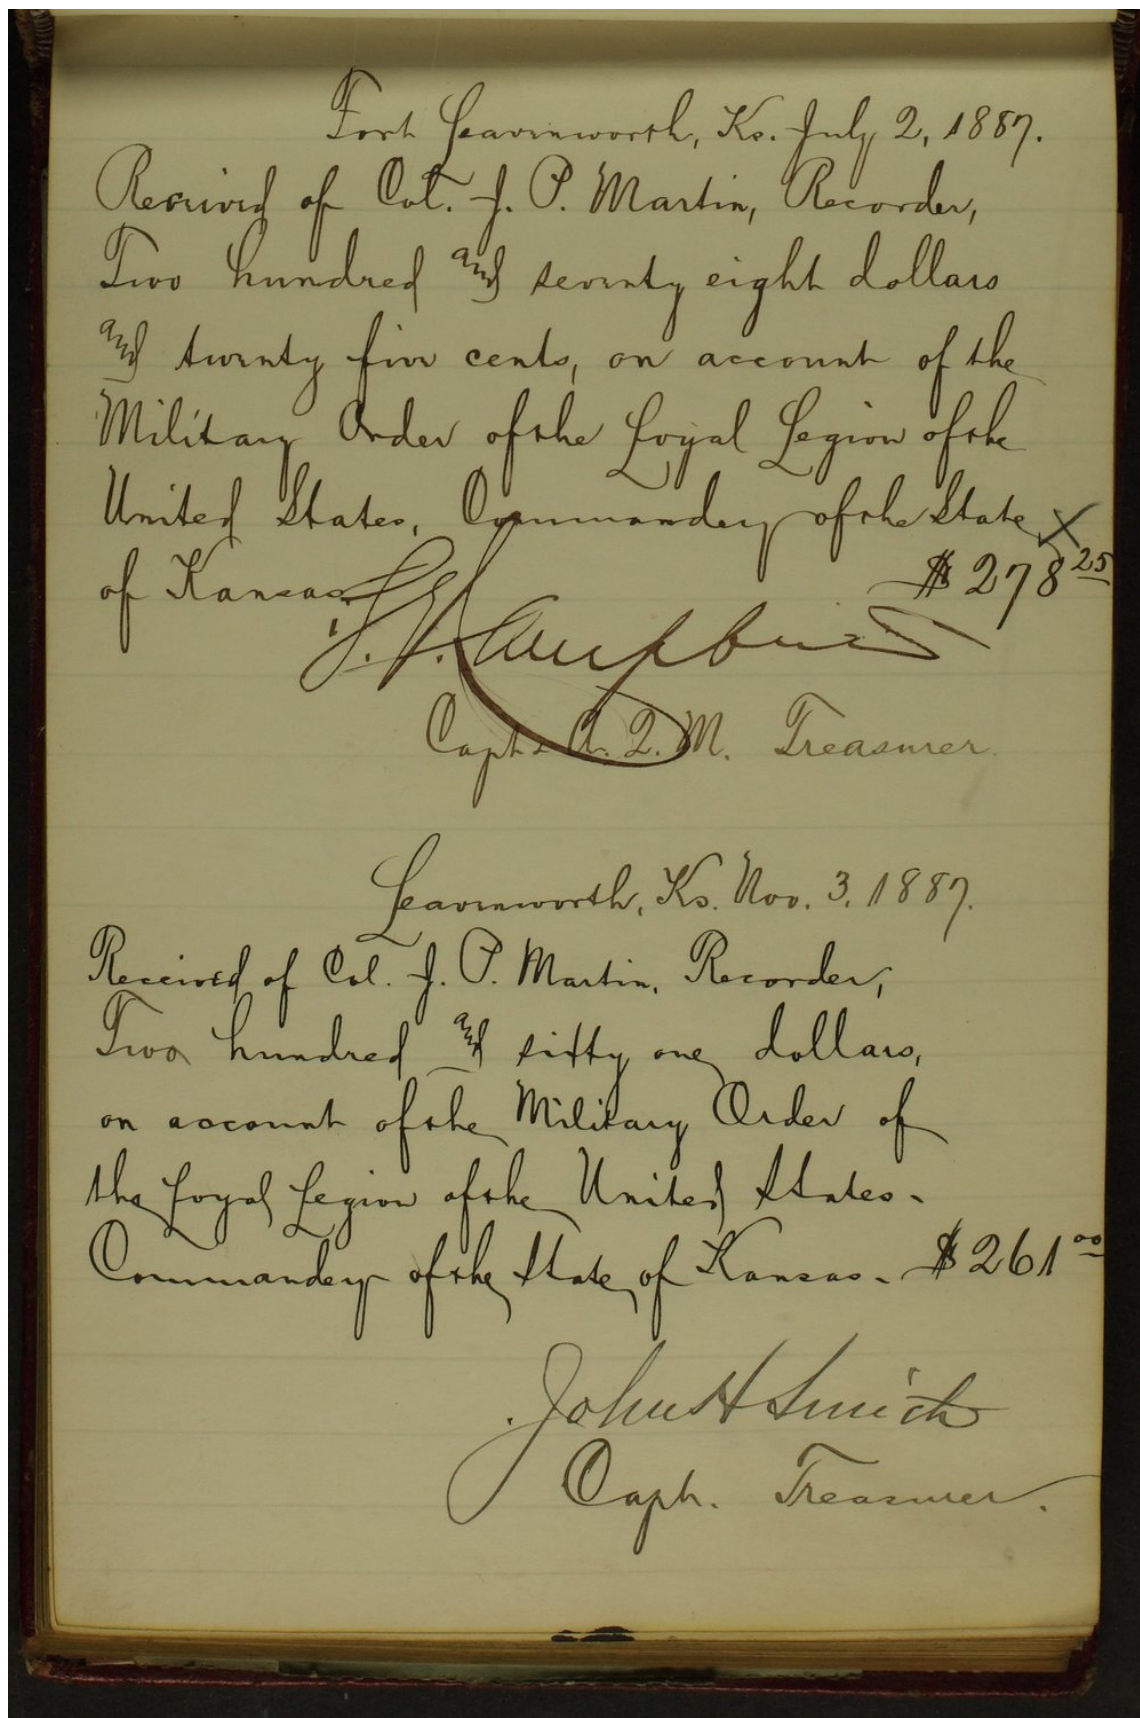 Fort Leavenworth, Ks. July 2, 1887.
Received of Col. J. P. Martin, Recorder,
Two hundred and seventy eight dollars
and twenty five cents, on account of the
Military Order of the Loyal Legion of the
United States, Commandery of the State
of Kansas. $278 25
Capt & A. Q. M. Treasurer.
Leavenworth, Ks. Nov. 3, 1887.
Received of Col. J. P. Martin, Recorder,
Two hundred and sixty one dollars,
on account of the Military Order of
the Loyal Legion of the United States -
Commandery of the State of Kansas - $261 00
John H Smith
Capt. Treasurer.